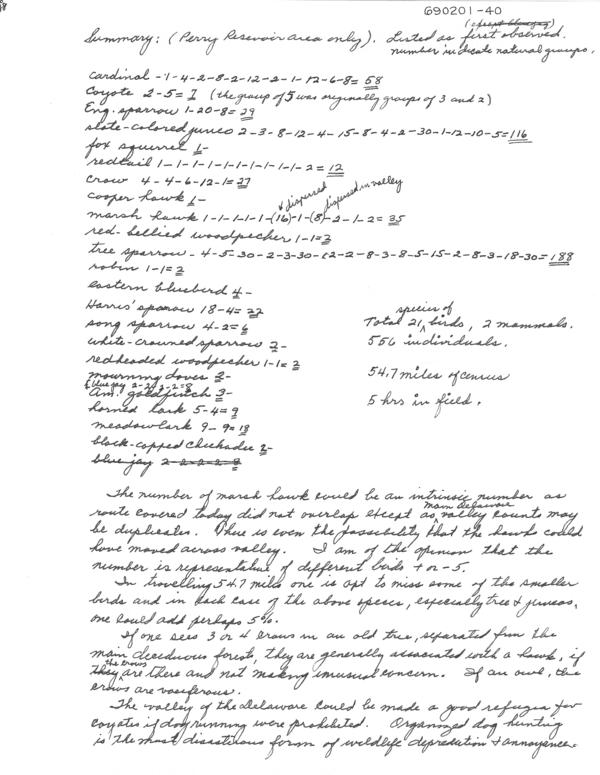 690201-40
(except bluejay)
Summary: (Perry Resevoir area only). Listed as first observed.
number indicate natural groups.
cardinal - 1-4-2-8-2-12-2-1-12-6-8= 58
Coyote 2-5= 7 (the group of 5 was originally groups of 3 and 2)
Eng. sparrow 1-20-8= 29
slate-colored junco 2-3-8-12-4-15-8-4-2-30-1-12-10-5= 116
fox squirrel 1-
redtail 1-1-1-1-1-1-1-1-1-1-2= 12
crow 4-4-6-12-1= 27
cooper hawk 1-
dispersed dispersed in valley
marsh hawk 1-1-1-1-1-(16)-1-(8)-2-1-2= 35
red-bellied woodpecker 1-1=2
tree sparrow - 4-5-30-2-3-30-12-2-8-3-8-5-15-2-8-3-18-30= 188
robin 1-1=2
eastern bluebird 4-
Harris' sparrow 18-4= 22
song sparrow 4-2= 6
white-crowned sparrow 2-
redheaded woodpecker 1-1= 2
mourning doves 2-
bluejay 2-2-2-2=8
Am. goldfinch 3-
horned lark 5-4= 9
meadowlark 9-9= 18
black-capped chickadee 2-
blue jay 2-2-2-2 8
species of
Total 21 birds, 2 mammals.
556 individuals.
54.7 miles of census
5 hrs in field.
The number of marsh hawk could be an intrinsic number as
main Delaware
route covered today did not overlap except as valley counts may
be duplicates. There is even the possibility that the hawks could
have moved across valley. I am of the opinion that the
number is representative of different birds + or -5.
In travelling 54.7 miles one is apt to miss some of the smaller
birds and in each case of the above species, especially tree + juncos,
one could add perhaps 5%.
If one sees 3 or 4 crows in an old tree, separated from the
main deciduous forests, they are generally associated with a hawk, if
the crows
they are there and not making unusual concern. If an owl, the
crows are vociferous.
The valley of the Delaware could be made a good refugia for
coyotes if dog running were prohibited. Organized dog hunting
is the most disastrous form of wildlife depredation + annoyance.